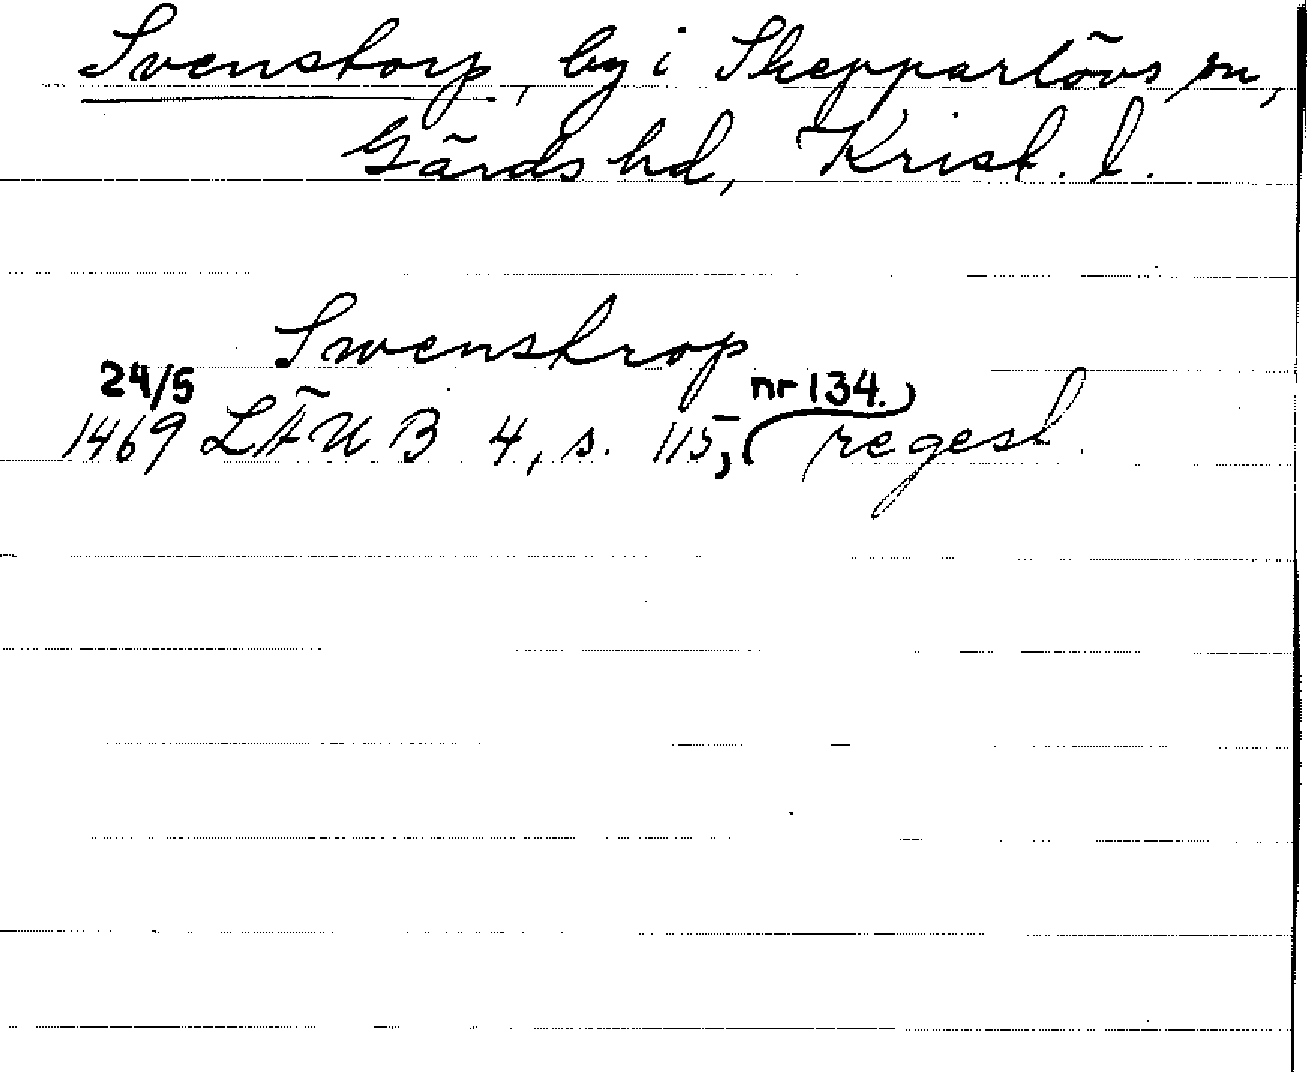 Svenstorp, by i Skepparlövs sn,
Gärds hd, Krist. l.
Swenstrop
24/5 nr 134.
1469 LÄUB 4, s. 115, regest.